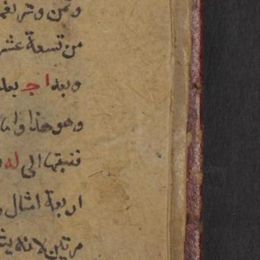 وثمن وتر نغمة
من تسعة عشر
وبعد ا ج بعد
وهو هذا واما
فنبقها الى له
اربعة امثال و
مرتين لانه يش